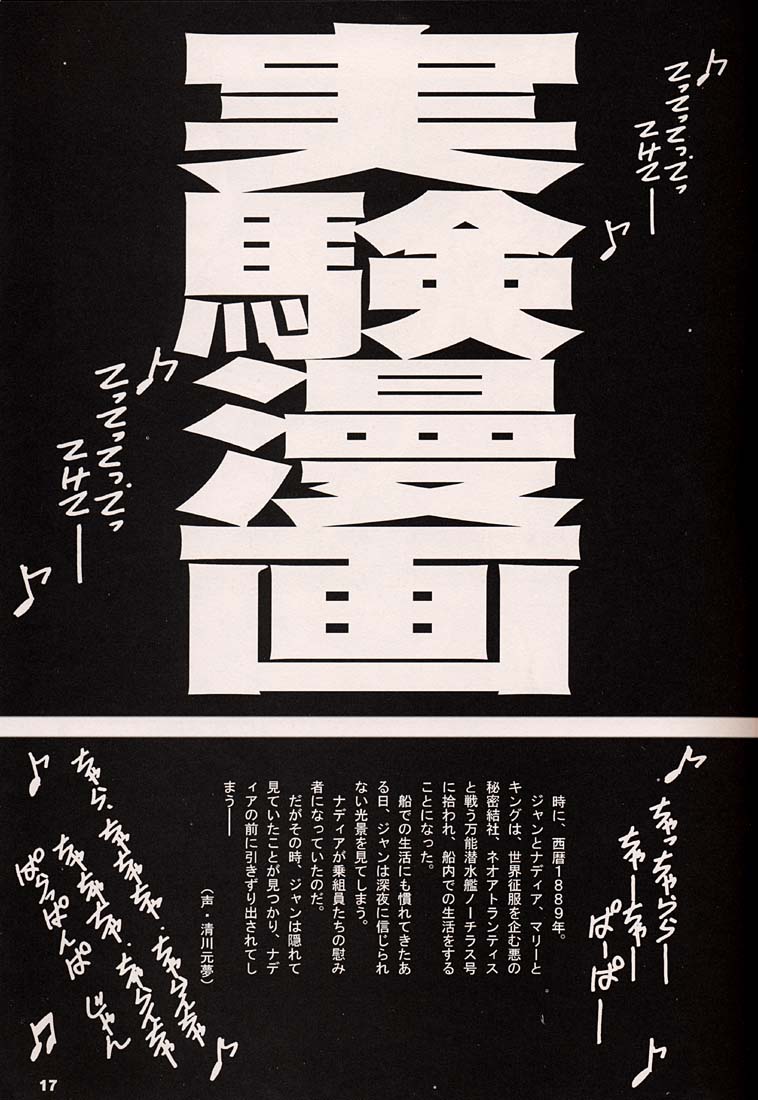 実験漫画
♪てってってってっ
てけてー♪
♪てってってってっ
てけてー♪
♪ちゃっちゃららー
ちゃーちゃー
ぱーぱー♪
時に、西暦1889年。
ジャンとナディア、マリーと
キングは、世界征服を企む悪の
秘密結社、ネオアトランティス
と戦う万能潜水艦ノーチラス号
に拾われ、船内での生活をする
ことになった。
船での生活にも慣れてきたあ
る日、ジャンは深夜に信じられ
ない光景を見てしまう。
ナディアが乗組員たちの慰み
者になっていたのだ。
だがその時、ジャンは隠れて
見ていたことが見つかり、ナデ
ィアの前に引きずり出されてし
まう――
（声・清川元夢）
17